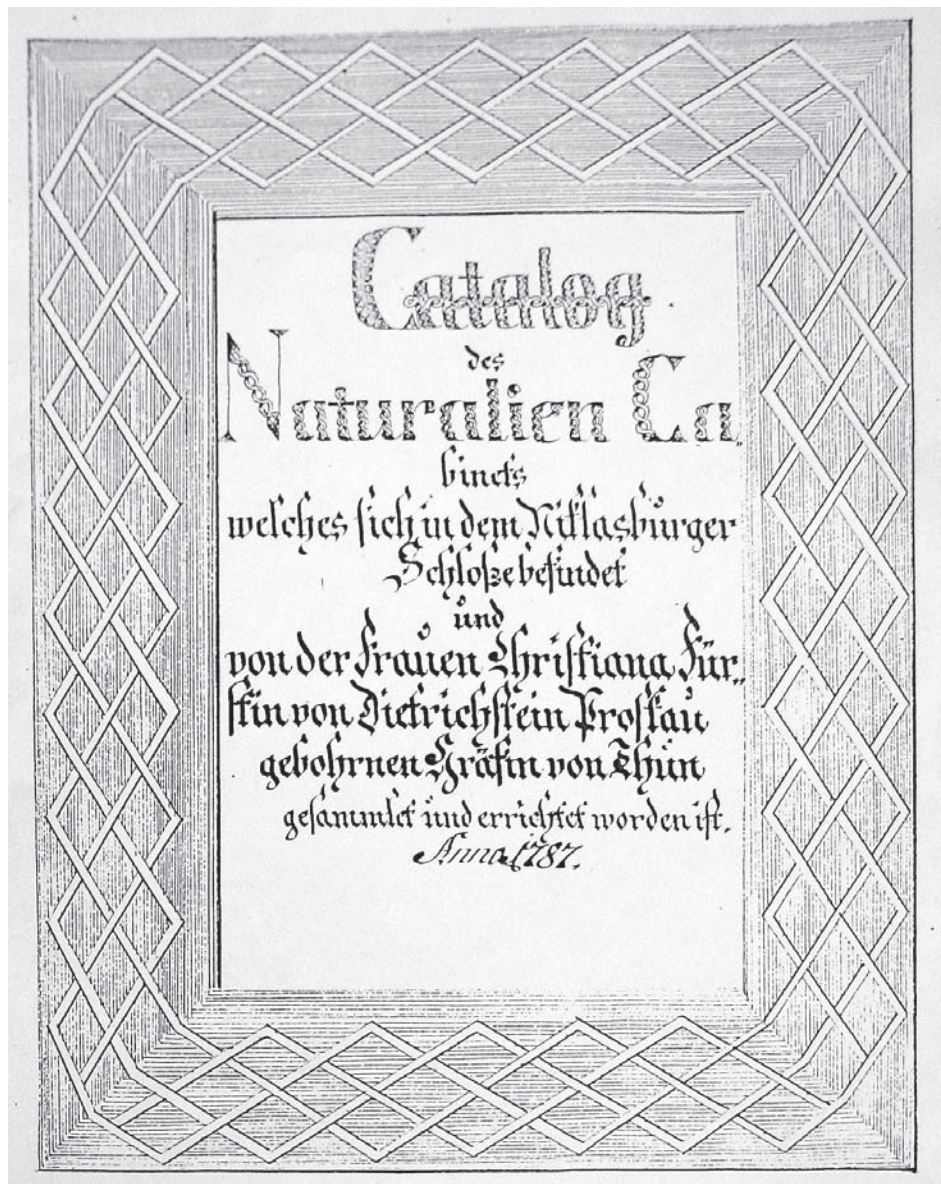 Catalog
des
Naturalien Ca„
binets
welches sich in dem Niklasburger
Schloße befindet
und
von der Frauen Christiana Für„
stin von Dietrichstein Proskau
gebohrnen Gräfin von Thun
gesammlet und errichtet worden ist.
Anno 1787.